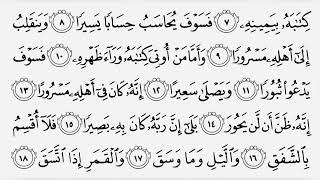 كِتَٰبَهُۥ بِيَمِينِهِۦ ٧ فَسَوْفَ يُحَاسَبُ حِسَابًا يَسِيرًا ٨ وَيَنقَلِبُ
إِلَىٰٓ أَهْلِهِۦ مَسْرُورًا ٩ وَأَمَّا مَنْ أُوتِىَ كِتَٰبَهُۥ وَرَآءَ ظَهْرِهِۦ ١٠ فَسَوْفَ
يَدْعُوا۟ ثُبُورًا ١١ وَيَصْلَىٰ سَعِيرًا ١٢ إِنَّهُۥ كَانَ فِىٓ أَهْلِهِۦ مَسْرُورًا ١٣
إِنَّهُۥ ظَنَّ أَن لَّن يَحُورَ ١٤ بَلَىٰٓ إِنَّ رَبَّهُۥ كَانَ بِهِۦ بَصِيرًا ١٥ فَلَآ أُقْسِمُ
بِٱلشَّفَقِ ١٦ وَٱلَّيْلِ وَمَا وَسَقَ ١٧ وَٱلْقَمَرِ إِذَا ٱتَّسَقَ ١٨